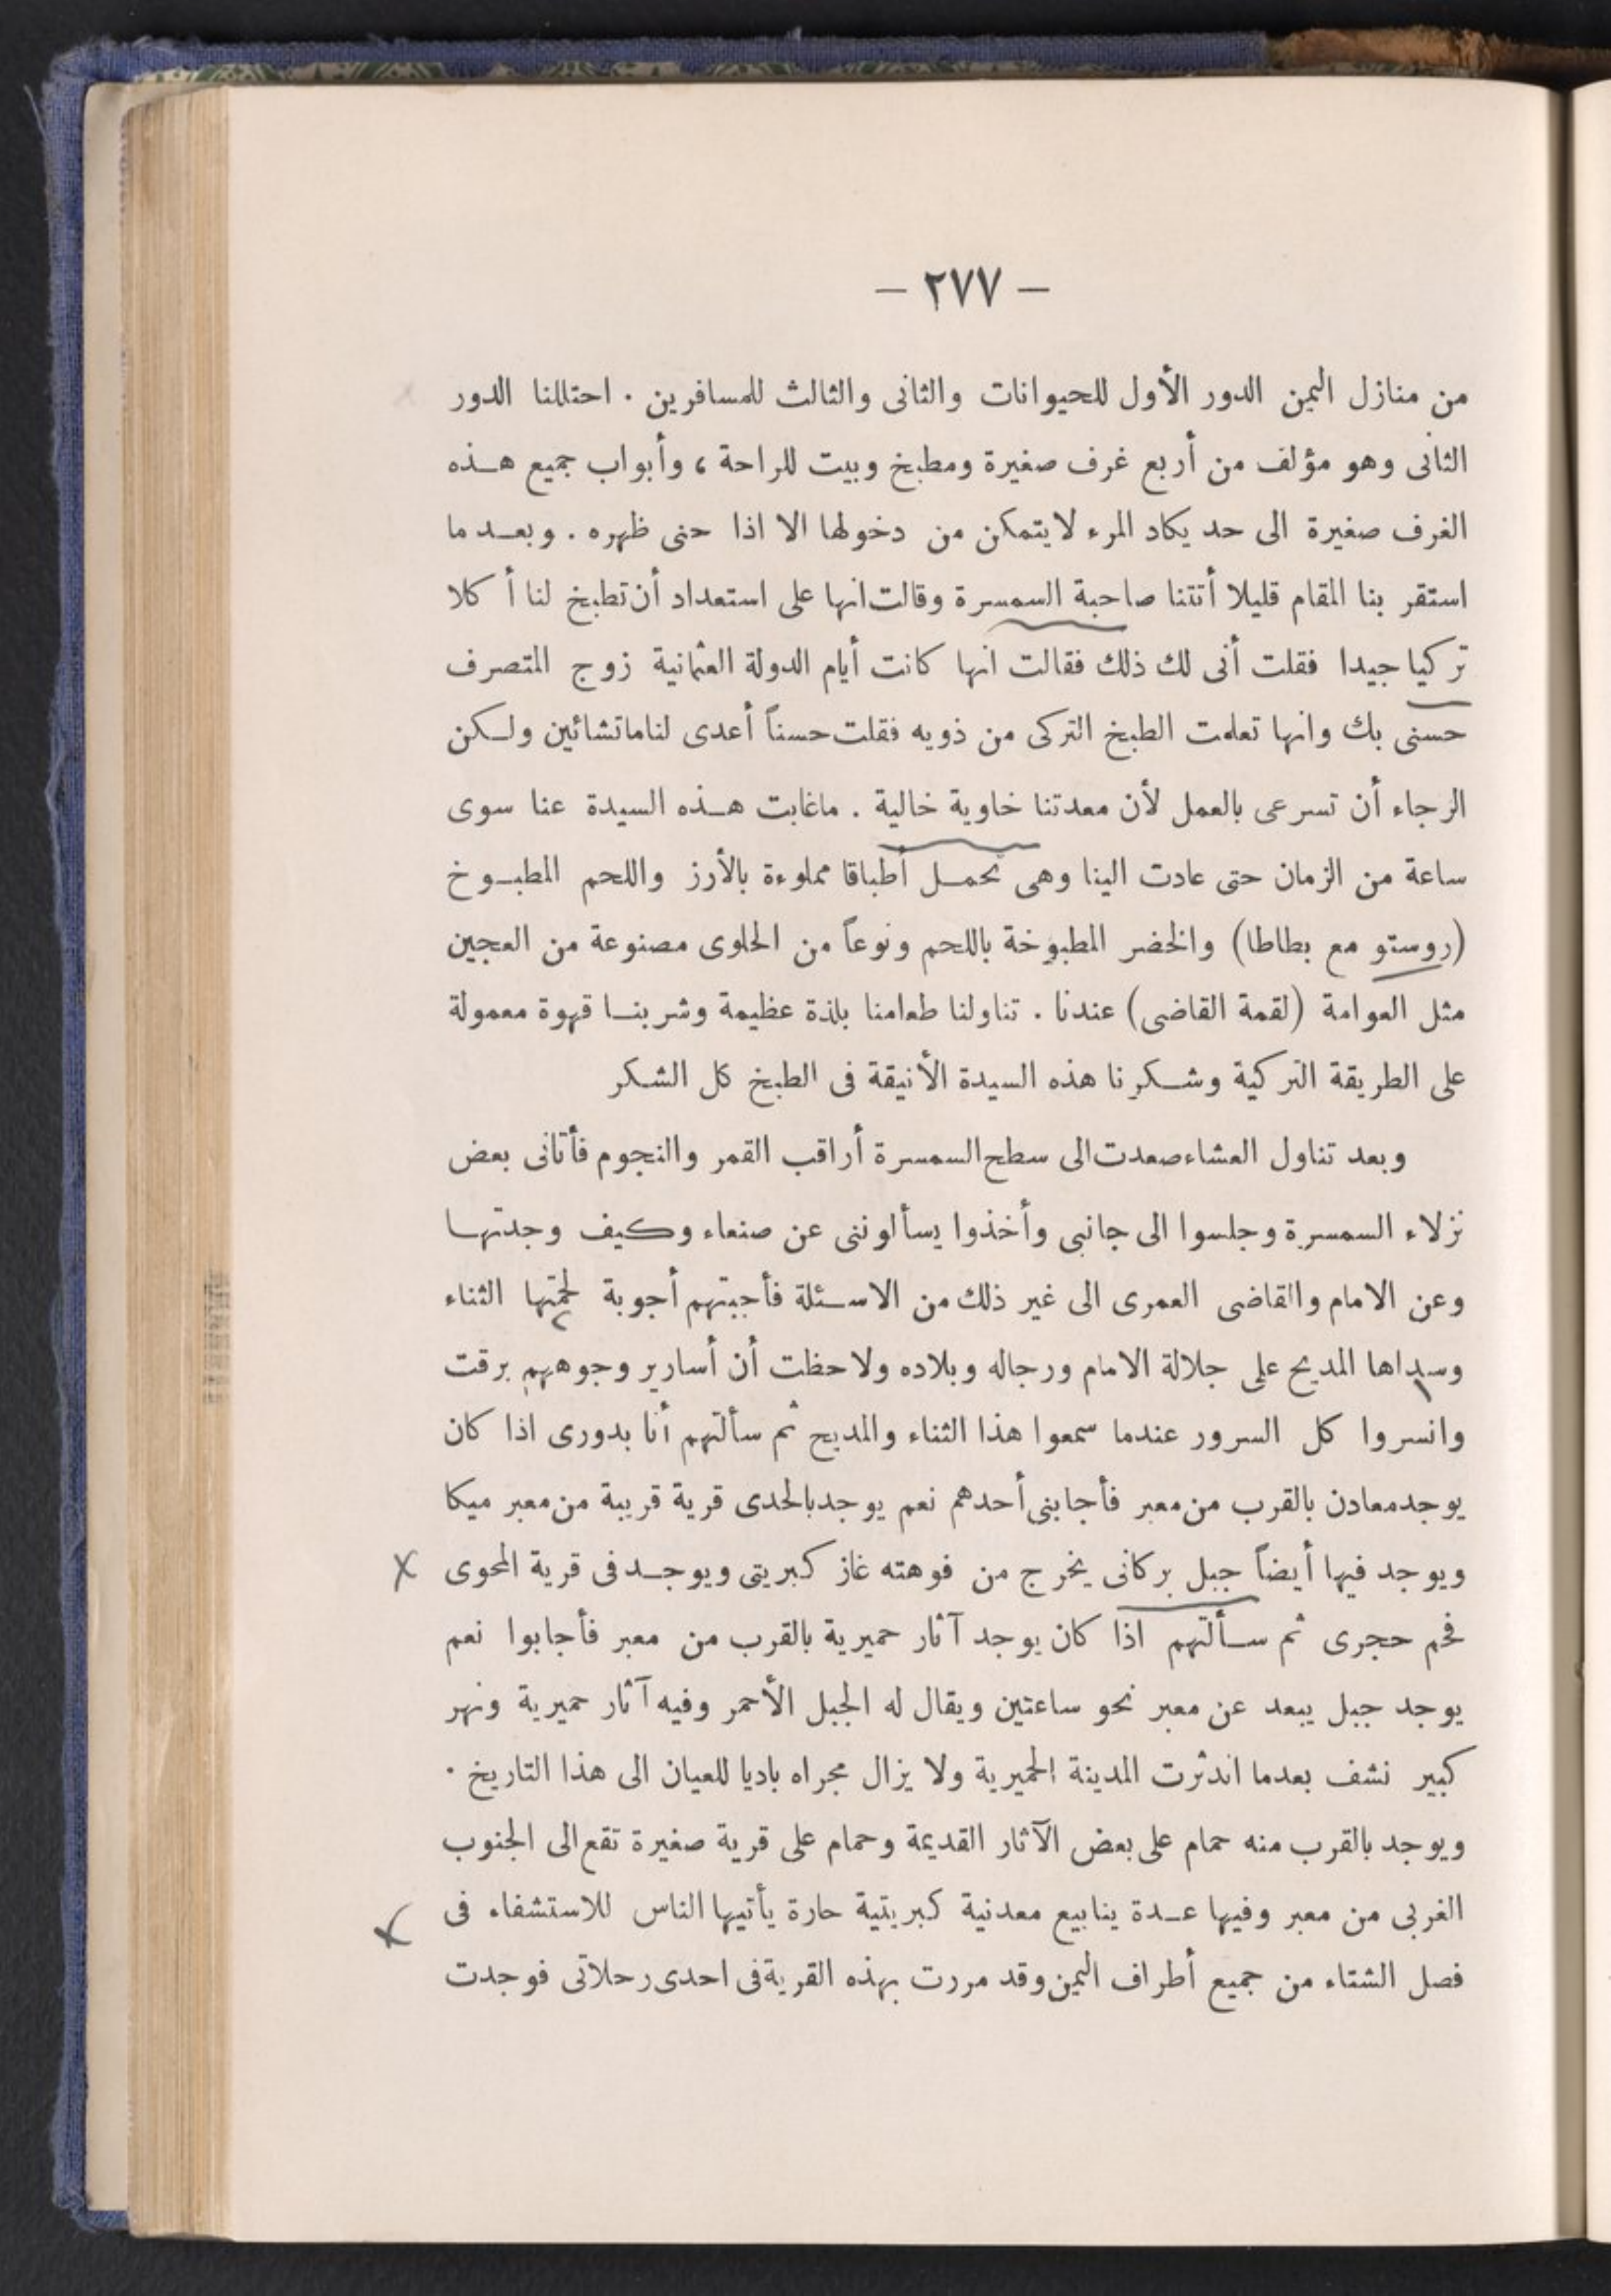 — ٢٧٧ —
من منازل اليمن الدور الأول للحيوانات والثانى والثالث للمسافرين . احتللنا الدور
الثانى وهو مؤلف من أربع غرف صغيرة ومطبخ وبيت للراحة ، وأبواب جميع هذه
الغرف صغيرة الى حد يكاد المرء لا يتمكن من دخولها الا اذا حنى ظهره . وبعد ما
استقر بنا المقام قليلا أتتنا صاحبة السمسرة وقالت انها على استعداد أن تطبخ لنا أكلا
تركيا جيدا فقلت أنى لك ذلك فقالت انها كانت أيام الدولة العثمانية زوج المتصرف
حسنى بك وانها تعلمت الطبخ التركى من ذويه فقلت حسناً أعدى لنا ماتشائين ولكن
الرجاء أن تسرعى بالعمل لأن معدتنا خاوية خالية . ماغابت هذه السيدة عنا سوى
ساعة من الزمان حتى عادت الينا وهى تحمل أطباقا مملوءة بالأرز واللحم المطبوخ
(روستو مع بطاطا) والخضر المطبوخة باللحم ونوعاً من الحلوى مصنوعة من العجين
مثل العوامة (لقمة القاضى) عندنا . تناولنا طعامنا بلذة عظيمة وشربنا قهوة معمولة
على الطريقة التركية وشكرنا هذه السيدة الأنيقة فى الطبخ كل الشكر
وبعد تناول العشاء صعدت الى سطح السمسرة أراقب القمر والنجوم فأتانى بعض
نزلاء السمسرة وجلسوا الى جانبى وأخذوا يسألوننى عن صنعاء وكيف وجدتها
وعن الامام والقاضى العمرى الى غير ذلك من الاسئلة فأجبتهم أجوبة لحمتها الثناء
وسداها المديح على جلالة الامام ورجاله وبلاده ولاحظت أن أسارير وجوههم برقت
وانسروا كل السرور عندما سمعوا هذا الثناء والمديح ثم سألتهم أنا بدورى اذا كان
يوجد معادن بالقرب من معبر فأجابنى أحدهم نعم يوجد بالحدى قرية قريبة من معبر ميكا
ويوجد فيها أيضاً جبل بركانى يخرج من فوهته غاز كبريتى ويوجد فى قرية المحوى
فحم حجرى ثم سألتهم اذا كان يوجد آثار حميرية بالقرب من معبر فأجابوا نعم
يوجد جبل يبعد عن معبر نحو ساعتين ويقال له الجبل الأحمر وفيه آثار حميرية ونهر
كبير نشف بعدما اندثرت المدينة الحميرية ولا يزال مجراه باديا للعيان الى هذا التاريخ .
ويوجد بالقرب منه حمام على بعض الآثار القديمة وحمام على قرية صغيرة تقع الى الجنوب
الغربى من معبر وفيها عدة ينابيع معدنية كبريتية حارة يأتيها الناس للاستشفاء فى
فصل الشتاء من جميع أطراف اليمن وقد مررت بهذه القرية فى احدى رحلاتى فوجدت